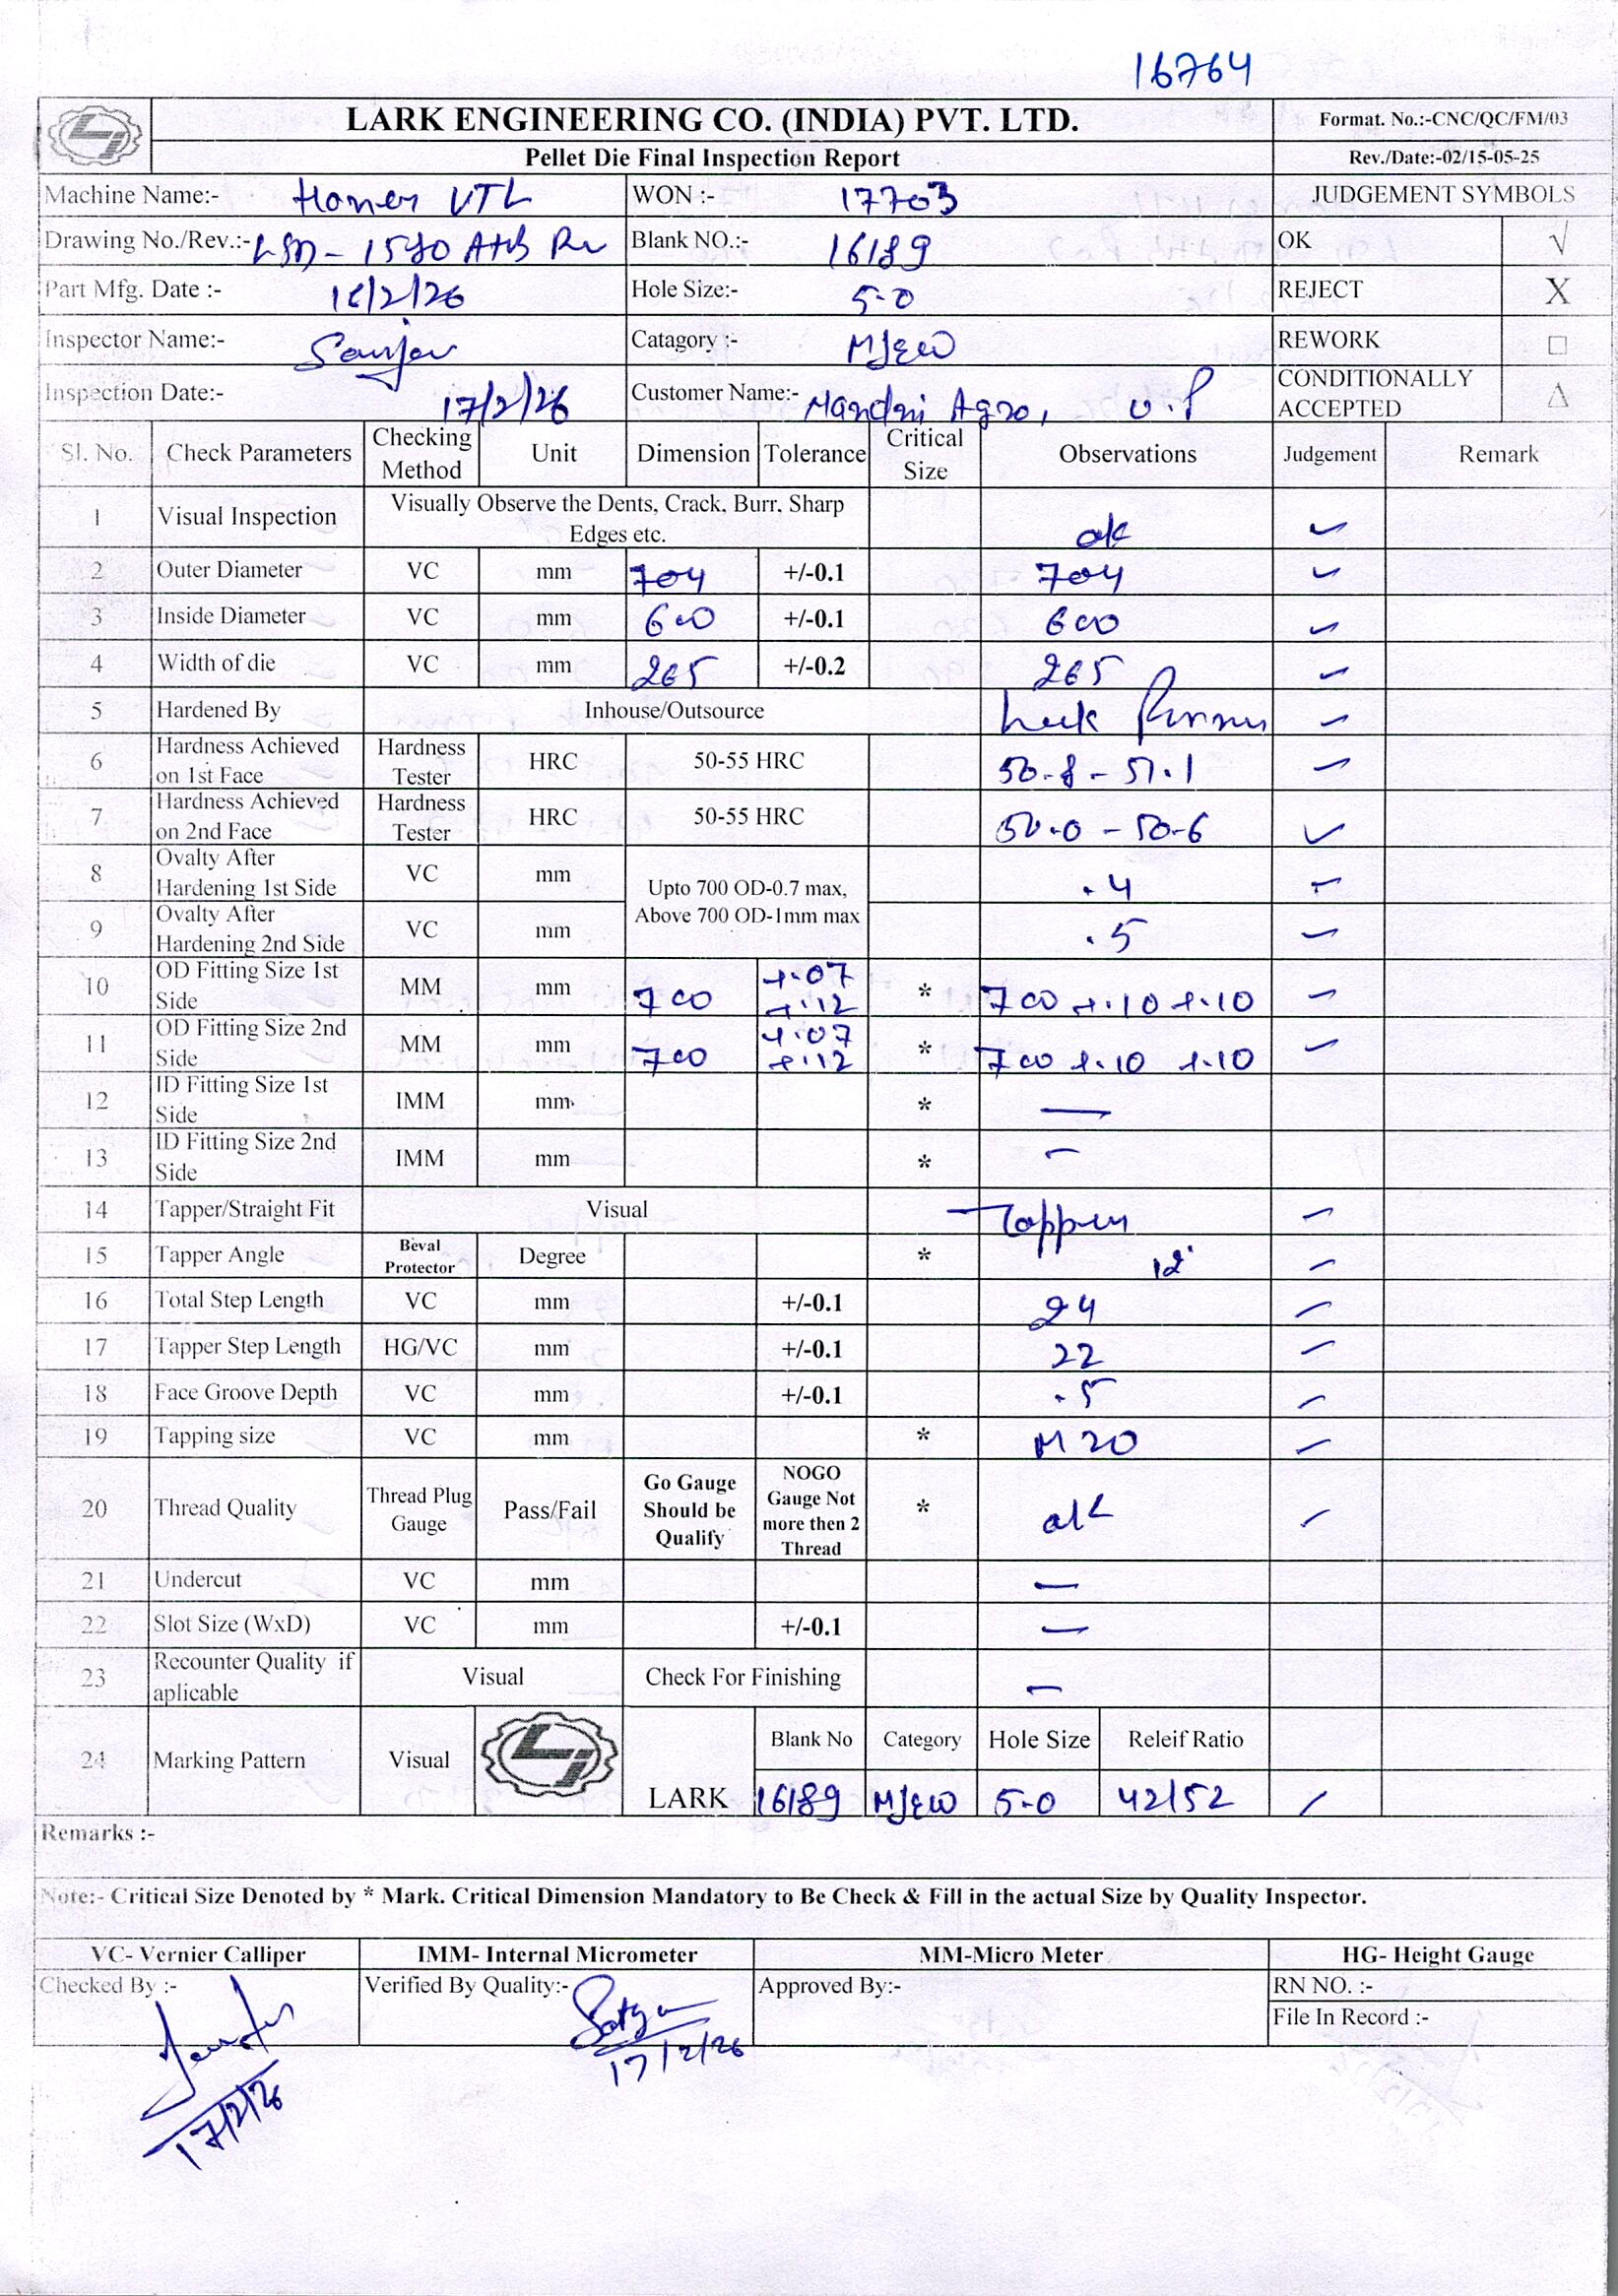 16764
LARK ENGINEERING CO. (INDIA) PVT. LTD. Format. No.:-CNC/QC/FM/03
Pellet Die Final Inspection Report Rev./Date:-02/15-05-25
Machine Name:- VTL WON :- 17703 JUDGEMENT SYMBOLS
Drawing No./Rev.:- Blank NO.:- 16189 OK √
Part Mfg. Date :- Hole Size:- 5.0 REJECT X
Inspector Name:- Catagory :- REWORK □
Inspection Date:- 17/2/26 Customer Name:- Agro, U.P CONDITIONALLY ACCEPTED △
Sl. No. Check Parameters Checking Method Unit Dimension Tolerance Critical Size Observations Judgement Remark
1 Visual Inspection Visually Observe the Dents, Crack, Burr, Sharp Edges etc. ok ✓
2 Outer Diameter VC mm 704 +/-0.1 704 ✓
3 Inside Diameter VC mm 600 +/-0.1 600 ✓
4 Width of die VC mm 265 +/-0.2 265 ✓
5 Hardened By Inhouse/Outsource ✓
6 Hardness Achieved on 1st Face Hardness Tester HRC 50-55 HRC 50.8 - 51.1 ✓
7 Hardness Achieved on 2nd Face Hardness Tester HRC 50-55 HRC 50.0 - 50.6 ✓
8 Ovalty After Hardening 1st Side VC mm Upto 700 OD-0.7 max, Above 700 OD-1mm max .4 ✓
9 Ovalty After Hardening 2nd Side VC mm .5 ✓
10 OD Fitting Size 1st Side MM mm 700 +.07 +.12 * 700 +.10 +.10 ✓
11 OD Fitting Size 2nd Side MM mm 700 +.07 +.12 * 700 +.10 +.10 ✓
12 ID Fitting Size 1st Side IMM mm * —
13 ID Fitting Size 2nd Side IMM mm * —
14 Tapper/Straight Fit Visual Tapper ✓
15 Tapper Angle Beval Protector Degree * 12° ✓
16 Total Step Length VC mm +/-0.1 24 ✓
17 Tapper Step Length HG/VC mm +/-0.1 22 ✓
18 Face Groove Depth VC mm +/-0.1 .5 ✓
19 Tapping size VC mm * M20 ✓
20 Thread Quality Thread Plug Gauge Pass/Fail Go Gauge Should be Qualify NOGO Gauge Not more then 2 Thread * ok ✓
21 Undercut VC mm —
22 Slot Size (WxD) VC mm +/-0.1 —
23 Recounter Quality if aplicable Visual Check For Finishing —
24 Marking Pattern Visual LARK Blank No Category Hole Size Releif Ratio
16189 5.0 42/52 ✓
Remarks :-
Note:- Critical Size Denoted by * Mark. Critical Dimension Mandatory to Be Check & Fill in the actual Size by Quality Inspector.
VC- Vernier Calliper IMM- Internal Micrometer MM-Micro Meter HG- Height Gauge
Checked By :- Verified By Quality:- Approved By:- RN NO. :-
File In Record :-
17/2/26
17/2/26